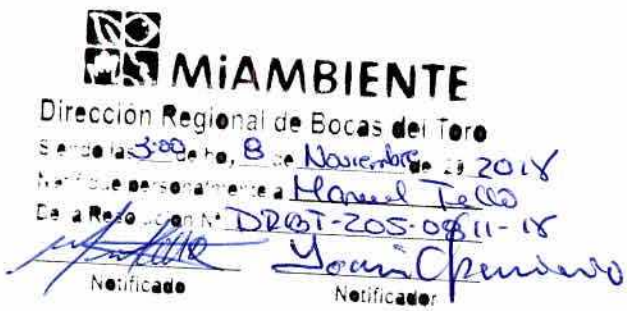 MiAMBIENTE
Dirección Regional de Bocas del Toro
Siendo las 3:00 de hoy, 8 de Noviembre de 2018
Notifique personalmente a Manuel Tello
De la Resolución N° DRBT-205-0811-18
Notificado
Notificador